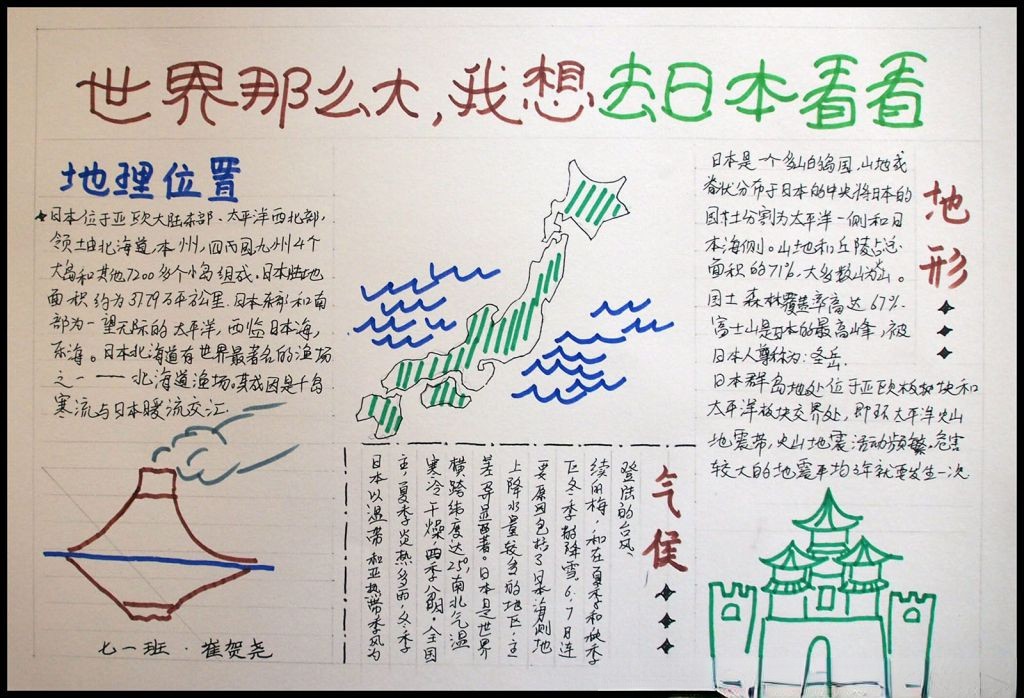 世界那么大,我想去日本看看
地理位置
日本位于亚欧大陆东部、太平洋西北部,
领土由北海道,本州,四国,九州4个
大岛和其他7200多个小岛组成。日本陆地
面积约为37.79万平方公里.日本东部和南
部为一望无际的太平洋,西临日本海,
东海。日本北海道有世界最著名的渔场
之一——北海道渔场。其成因是千岛
寒流与日本暖流交汇.
日本是一个多山的岛国,山地成
脊状分布于日本的中央将日本的
国土分割为太平洋一侧和日
本海侧。山地和丘陵占总
面积的71%.大多数山为山。
国土森林覆盖率高达67%.
富士山是日本的最高峰,被
日本人尊称为:圣岳.
日本群岛地处位于亚欧板块和
太平洋板块交界处,即环太平洋火山
地震带,火山地震活动频繁.危害
较大的地震平均3年就要发生一次.
地形
气候
日本以温带和亚热带季风为
主,夏季炎热多雨,冬季
寒冷干燥,四季分明,全国
横跨纬度达25°,南北气温
差异显著。日本是世界
上降水量较多的地区.主
要原因包括了日本海侧地
区冬季的降雪.6、7月连
续的梅,和在夏季和秋季
登陆的台风
七一班·崔贺尧